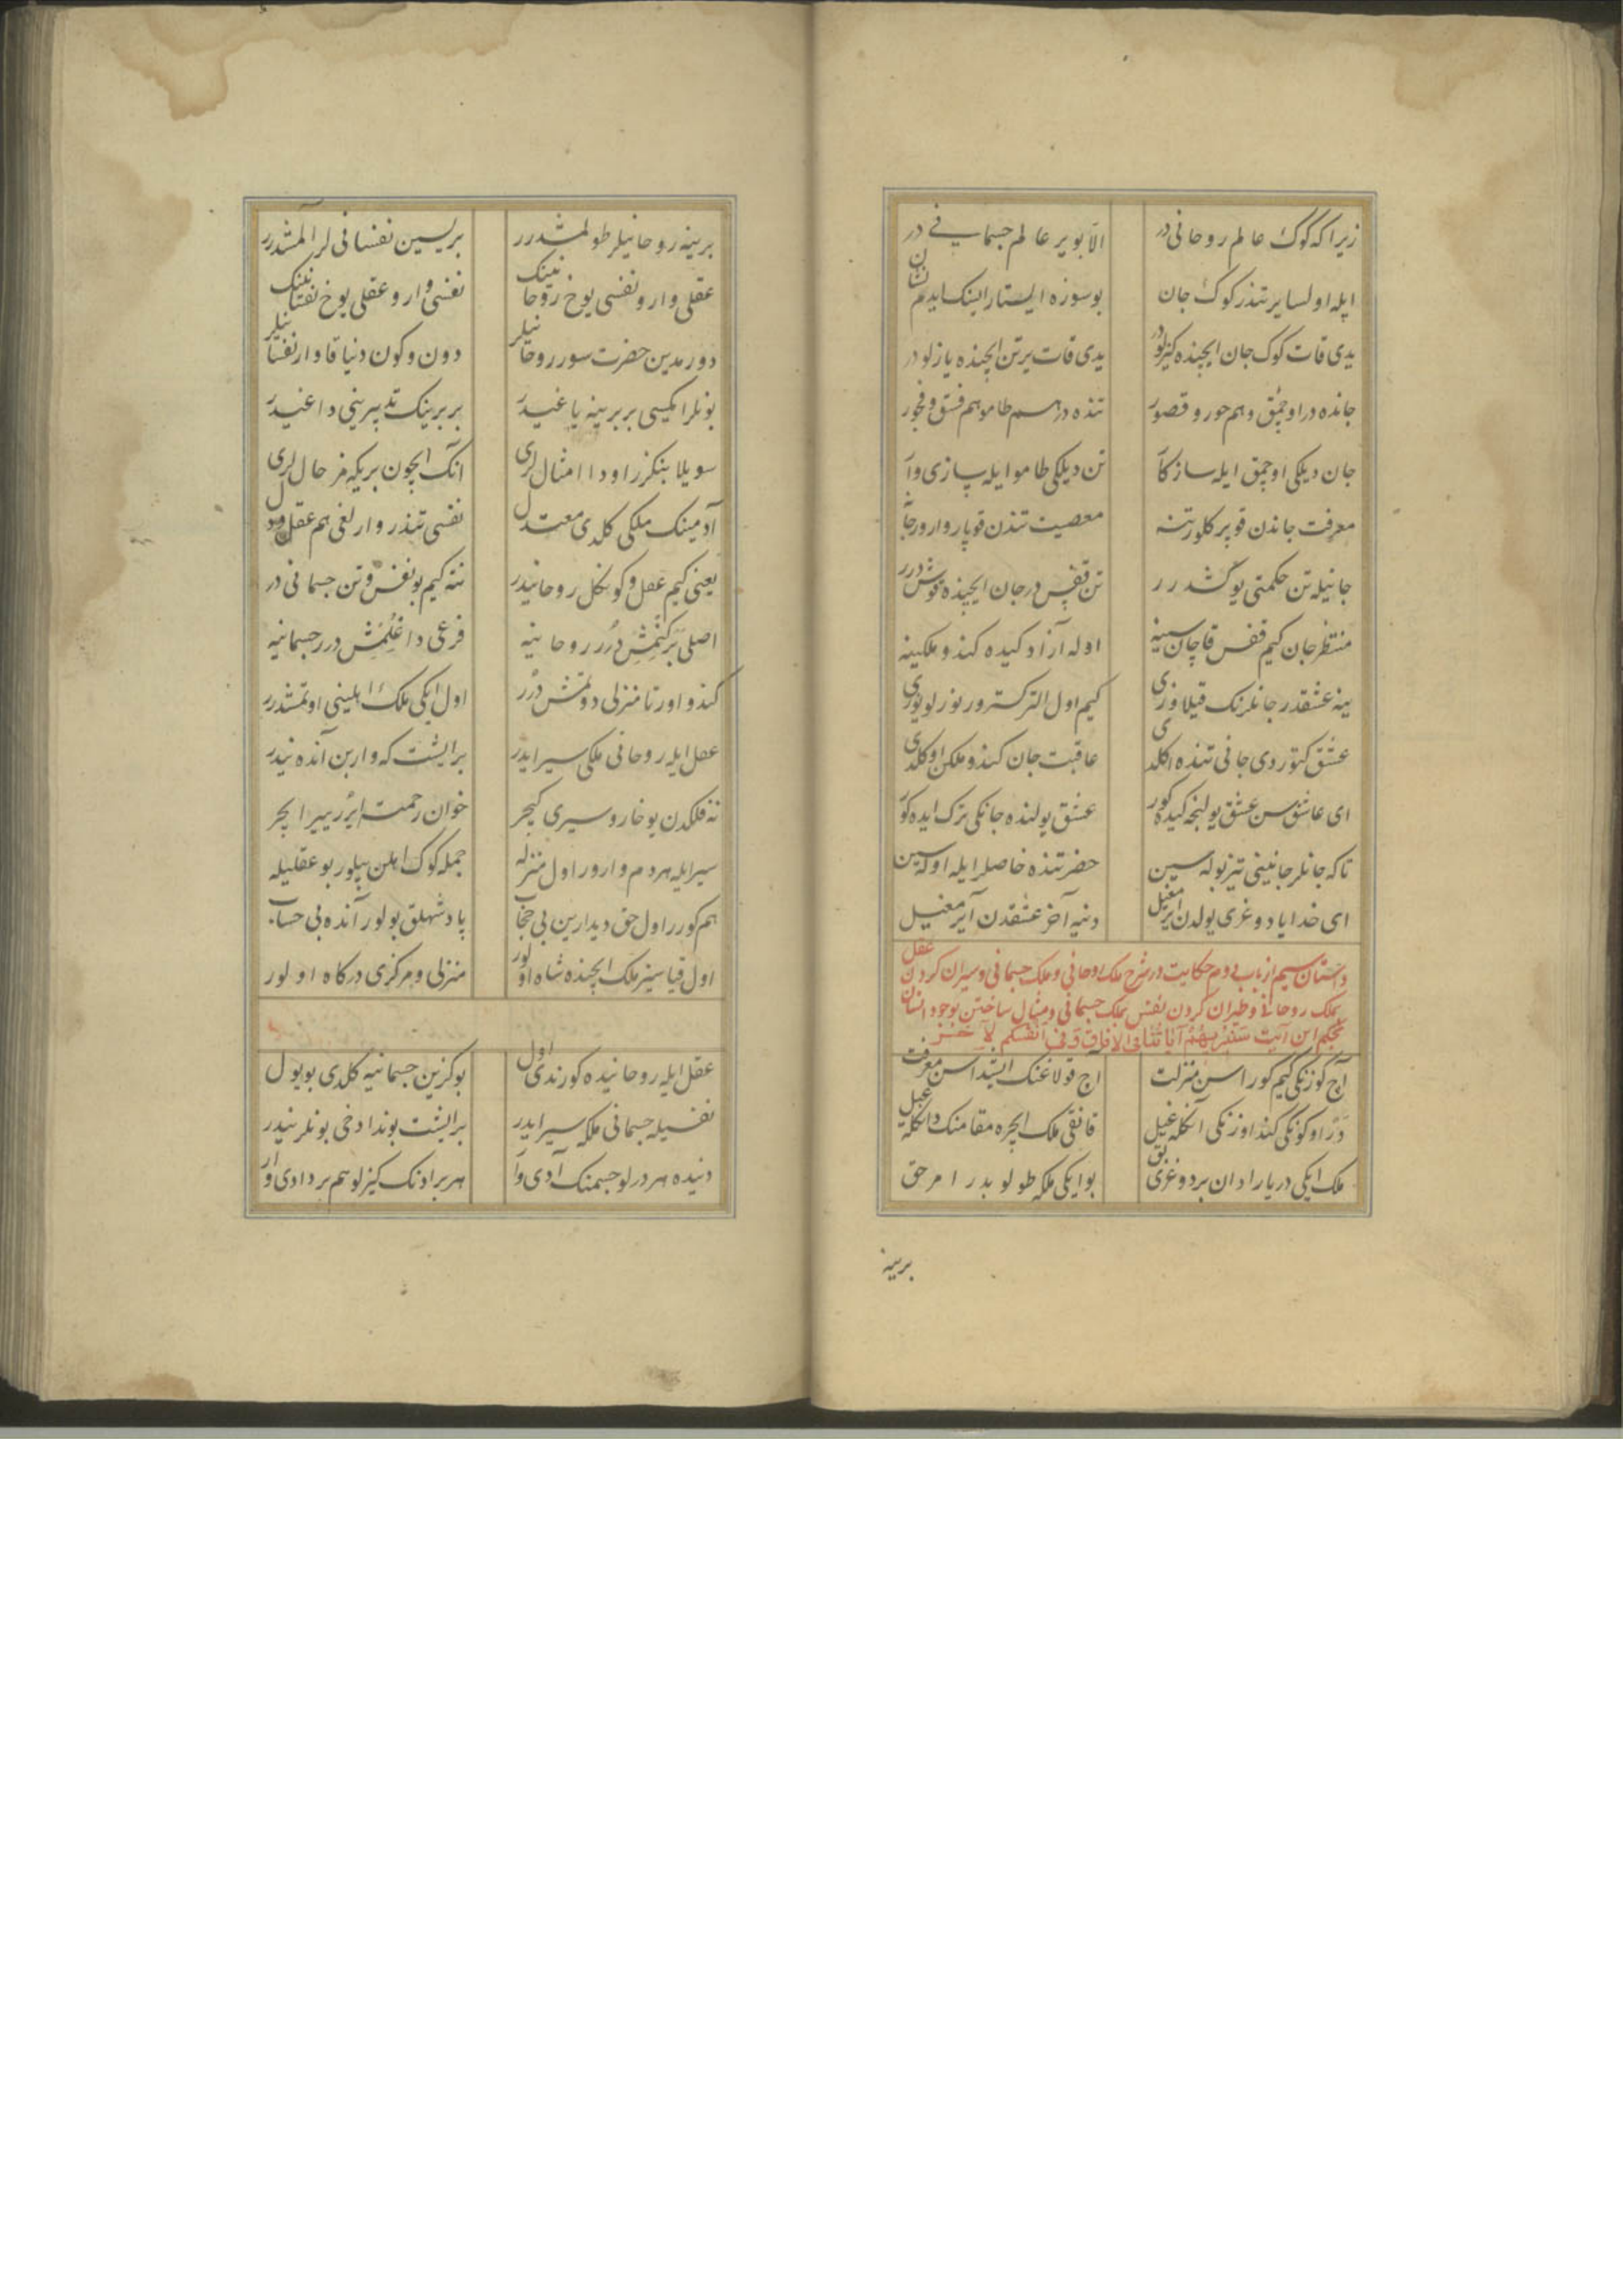 زیرا که کوک عالم روحانی در الا بو یر عالم جسمانی در
ایله اولسا یر تندر کوک جان بو سوزه ایستارایسنک ایدم نشان
یدی قات کوک جان ایچنده کیزلودر یدی قات یر تن ایچنده یازلودر
جانده در اوچمق و هم حور و قصور تنده در هم طامو هم فسق و فجور
جان دیلکی اوچمق ایله ساز کا تن دیلکی طامو ایله سازی وا
معرفت جاندن قوپر کلور تنه معصیت تندن قوپار وارور جانه
جانیله تن حکمتی بو کشدرر تن قفس در جان ایچنده قوش درر
منتظر جان کیم قفس قاچان سینه اوله آزاد کیده کندو ملکینه
ینه عشقدر جانلرنک قیلاوزی کیم اول التر کسترور نورلو یوزی
عشق کتوردی جانی تنده اکلدی عاقبت جان کندو ملکن اوکلدی
ای عاشق سن عشق یولنجه کیده کور عشق یولنده جانکی ترک ایده کور
تا که جانلر جانینی تیز بوله سین حضرتنده خاصلر ایله اوله سین
ای خدایا دوغری یولدن ایرمغیل دنیه آخر عشقدن آیرمغیل
داستان سیم از باب دوم حکایت در شرح ملک روحانی و ملک جسمانی و سیران کردن عقل
بملک روحانی و طیران کردن نفس بملک جسمانی و مثال ساختن بوجود انسان
بحکم این آیت سنریهم آیاتنا فی الافاق و فی انفسکم
آچ کوزنکی کیم کوراسن منزلت آچ قولاغنک ایشیداسن معرفت
در اوکونکی کند اوزنکی آنکله غیل قانقی ملک ایچره مقامنک دانکله غیل
ملک ایکی در یارادان بر دوغری بق بو ایکی ملکه طولوبدر امر حق
برینه
برینه روحانیلر طولمشدرر بریسین نفسانی لر آلمشدرر
عقلی وار و نفسی یوخ روحانینک نفسی وار و عقلی یوخ نفسانینک
دورمدین حضرت سورر روحانیلر دون و کون دنیا قاوار نفسانیلر
بونلر ایکیسی بربرینه یاغیدر بربرینک تدبیرینی داغیدر
سویلا بنکزر اودا امثاللری انک ایچون بریکمز حاللری
آدمینک ملکی کلدی معتدل نفسی تندر وارلغی هم عقل و دل
یعنی کیم عقل و کونکل روحانیدر نته کیم بو نفس و تن جسمانی در
اصلی برکنمش درر روحانیه فرعی داغلمش درر جسمانیه
کندو اورتا منزلی دوتمش درر اول ایکی ملک اهلینی اوتمشدرر
عقل ایله روحانی ملکی سیر ایدر بر ایشت که واربن آنده نیدر
نه فلکدن یوخارو سیری کیچر خوان رحمت ایرر ییرا ایچر
سیر ایله هر دم وارور اول منزله جمله کوک اهلن بیلور بو عقلیله
هم کورر اول حق دیدارین بی حجاب پادشهلق بولور آنده بی حساب
اول قیاسیز ملک ایچنده شاه اولور منزلی و مرکزی درکاه اولور
عقل ایله روحانیده کورندی اول بو کزین جسمانیه کلدی بو یول
نفسیله جسمانی ملکه سیر ایدر بر ایشت بوندا دخی بونلر نیدر
دنیده هر درلو جسمنک آدی وار هر بر ادنک کیزلو هم بر دادی وار